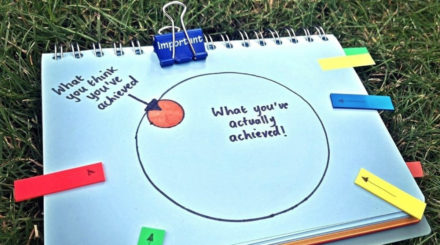 Important
What
you think
you've
achieved
What you've
actually
achieved!